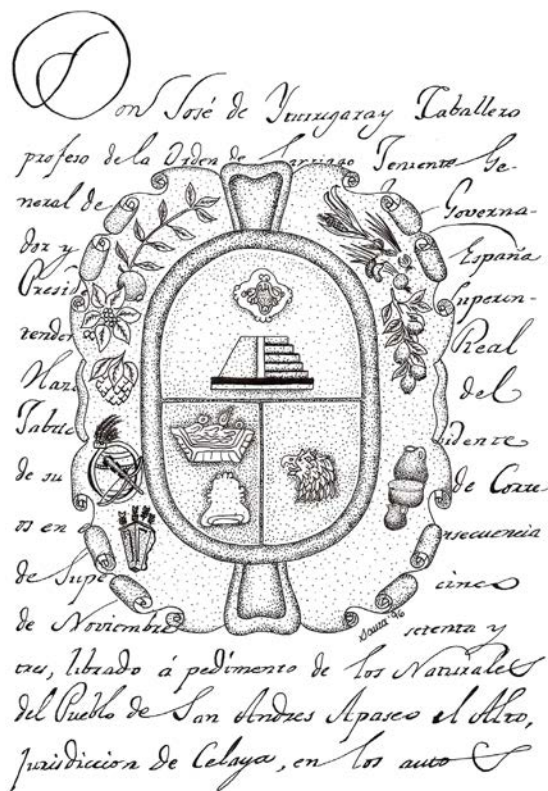 Don José de Yturrigaray Caballero
profeso de la Orden de Santiago Teniente Ge-
neral de Governa-
dor y España
Presid Superin-
tenden Real
Haz del
Tabac idente
de su de Corre
os en nsecuencia
de Supe cinco
de Noviembre setenta y
tres, librado á pedimento de los Naturales
del Pueblo de San Andres Apaseo el Alto,
jurisdiccion de Celaya, en los autos